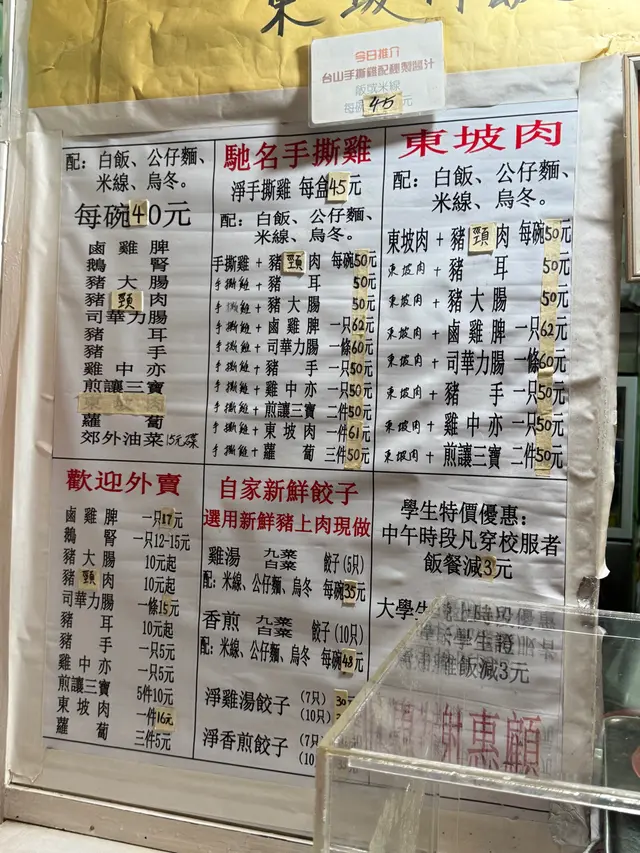 東坡
今日推介
台山手撕雞配秘製醬汁
飯或米線
每碗45元
配：白飯、公仔麵、
米線、烏冬。
每碗40元
鹵雞脾
鵝腎
豬大腸
豬頸肉
司華力腸
豬耳
豬手
雞中亦
煎讓三寶
蘿蔔
郊外油菜15元碟
馳名手撕雞
淨手撕雞 每盒45元
配：白飯、公仔麵、
米線、烏冬。
手撕雞+豬頸肉 每碗50元
手撕雞+豬耳 50元
手撕雞+豬大腸 50元
手撕雞+鹵雞脾 一只62元
手撕雞+司華力腸 一條60元
手撕雞+豬手 一只50元
手撕雞+雞中亦 一只50元
手撕雞+煎讓三寶 二件50元
手撕雞+東坡肉 一件61元
手撕雞+蘿蔔 三件50元
東坡肉
配：白飯、公仔麵、
米線、烏冬。
東坡肉+豬頸肉 每碗50元
東坡肉+豬耳 50元
東坡肉+豬大腸 50元
東坡肉+鹵雞脾 一只62元
東坡肉+司華力腸 一條60元
東坡肉+豬手 一只50元
東坡肉+雞中亦 一只50元
東坡肉+煎讓三寶 二件50元
歡迎外賣
鹵雞脾 一只17元
鵝腎 一只12-15元
豬大腸 10元起
豬頸肉 10元起
司華力腸 一條15元
豬耳 10元起
豬手 一只5元
雞中亦 一只5元
煎讓三寶 5件10元
東坡肉 一件16元
蘿蔔 三件5元
自家新鮮餃子
選用新鮮豬上肉現做
雞湯 九菜 白菜 餃子(5只)
配：米線、公仔麵、烏冬 每碗35元
香煎 九菜 白菜 餃子(10只)
配：米線、公仔麵、烏冬 每碗48元
淨雞湯餃子 (7只) 30
(10只)
淨香煎餃子 (7只
(10
學生特價優惠：
中午時段凡穿校服者
飯餐減3元
大學生 上時段優惠
學生證
飯減3元
謝惠顧